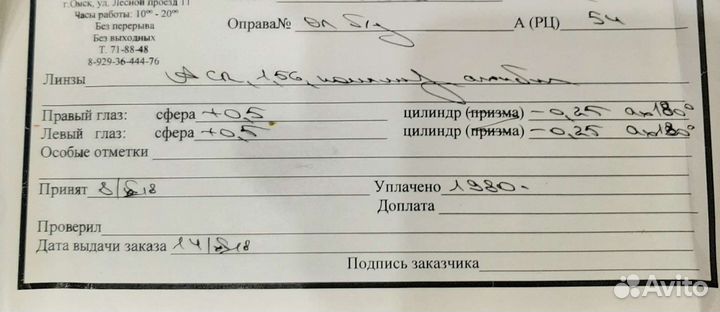 г.Омск, ул. Лесной проезд 11
Часы работы: 10⁰⁰ - 20⁰⁰
Без перерыва
Без выходных
Т. 71-88-48
8-929-36-444-76
Оправа№ А (РЦ) 54
Линзы АСП, 1,56,
Правый глаз: сфера +0,5 цилиндр (призма) -0,25 ах 180°
Левый глаз: сфера +0,5 цилиндр (призма) -0,25 ах 180°
Особые отметки
Принят Уплачено 1980-
Доплата
Проверил
Дата выдачи заказа
Подпись заказчика
Avito